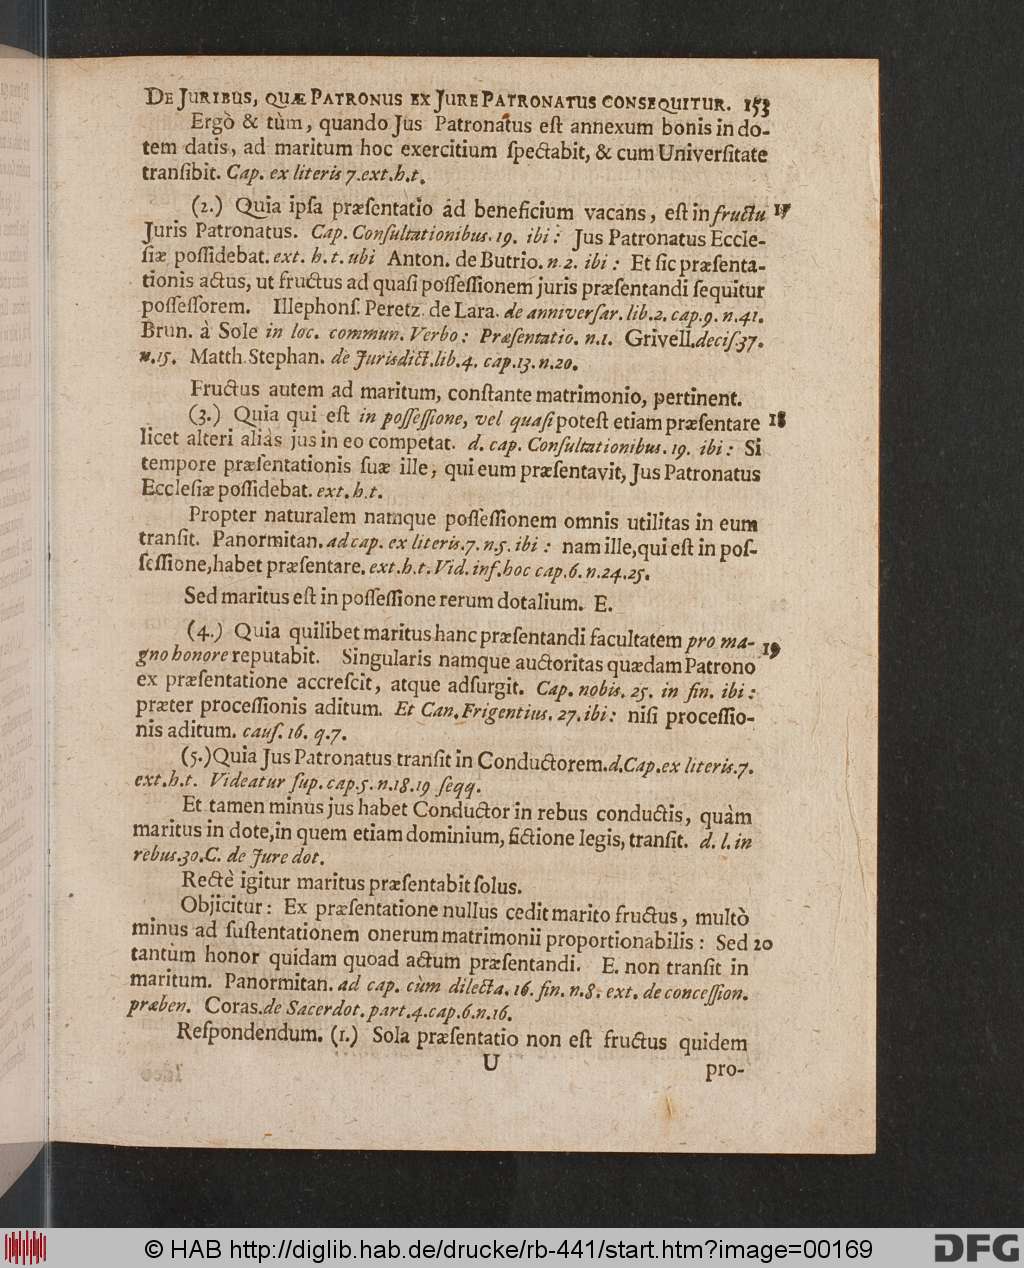 DE JURIBUS, QUÆ PATRONUS EX JURE PATRONATUS CONSEQUITUR. 153
Ergò & tùm, quando Jus Patronatus eſt annexum bonis in do-
tem datis, ad maritum hoc exercitium ſpectabit, & cum Univerſitate
tranſibit. Cap. ex literis 7. ext. h. t.
(2.) Quia ipſa præſentatio ad beneficium vacans, eſt in fructu 17
Juris Patronatus. Cap. Conſultationibus. 19. ibi: Jus Patronatus Eccle-
ſiæ poſſidebat. ext. h. t. ubi Anton. de Butrio. n. 2. ibi: Et ſic præſenta-
tionis actus, ut fructus ad quaſi poſſeſſionem juris præſentandi ſequitur
poſſeſſorem. Illephonſ. Peretz. de Lara. de anniverſar. lib. 2. cap. 9. n. 41.
Brun. à Sole in loc. commun. Verbo: Præſentatio. n. 1. Grivell. deciſ 37.
n. 15. Matth. Stephan. de Jurisdict. lib. 4. cap. 13. n. 20.
Fructus autem ad maritum, conſtante matrimonio, pertinent.
(3.) Quia qui eſt in poſſeſſione, vel quaſi poteſt etiam præſentare 18
licet alteri aliàs jus in eo competat. d. cap. Conſultationibus. 19. ibi: Si
tempore præſentationis ſuæ ille, qui eum præſentavit, Jus Patronatus
Eccleſiæ poſſidebat. ext. h. t.
Propter naturalem namque poſſeſſionem omnis utilitas in eum
tranſit. Panormitan. ad cap. ex literis. 7. n. 5. ibi: nam ille, qui eſt in poſ-
ſeſſione, habet præſentare. ext. h. t. Vid. inf. hoc cap. 6. n. 24. 25.
Sed maritus eſt in poſſeſſione rerum dotalium. E.
(4.) Quia quilibet maritus hanc præſentandi facultatem pro ma- 19
gno honore reputabit. Singularis namque auctoritas quædam Patrono
ex præſentatione accreſcit, atque adſurgit. Cap. nobis. 25. in fin. ibi:
præter proceſſionis aditum. Et Can. Frigentius. 27. ibi: niſi proceſſio-
nis aditum. cauſ. 16. q. 7.
(5.) Quia Jus Patronatus tranſit in Conductorem. d. Cap. ex literis. 7.
ext. h. t. Videatur ſup. cap. 5. n. 18. 19 ſeqq.
Et tamen minus jus habet Conductor in rebus conductis, quàm
maritus in dote, in quem etiam dominium, fictione legis, tranſit. d. l. in
rebus. 30. C. de Jure dot.
Rectè igitur maritus præſentabit ſolus.
Objicitur: Ex præſentatione nullus cedit marito fructus, multò
minus ad ſuſtentationem onerum matrimonii proportionabilis: Sed 20
tantùm honor quidam quoad actum præſentandi. E. non tranſit in
maritum. Panormitan. ad cap. cùm dilecta. 16. fin. n. 8. ext. de conceſſion.
præben. Coras. de Sacerdot. part. 4. cap. 6. n. 16.
Reſpondendum. (1.) Sola præſentatio non eſt fructus quidem
U
pro-
© HAB http://diglib.hab.de/drucke/rb-441/start.htm?image=00169
DFG